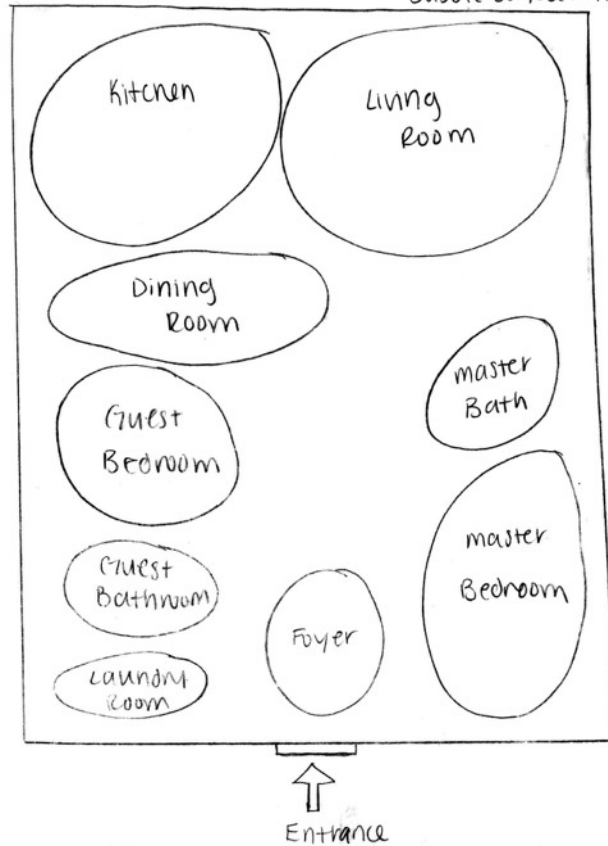 Kitchen
Living
Room
Dining
Room
master
Bath
Guest
Bedroom
master
Bedroom
Guest
Bathroom
Foyer
Laundry
Room
Entrance